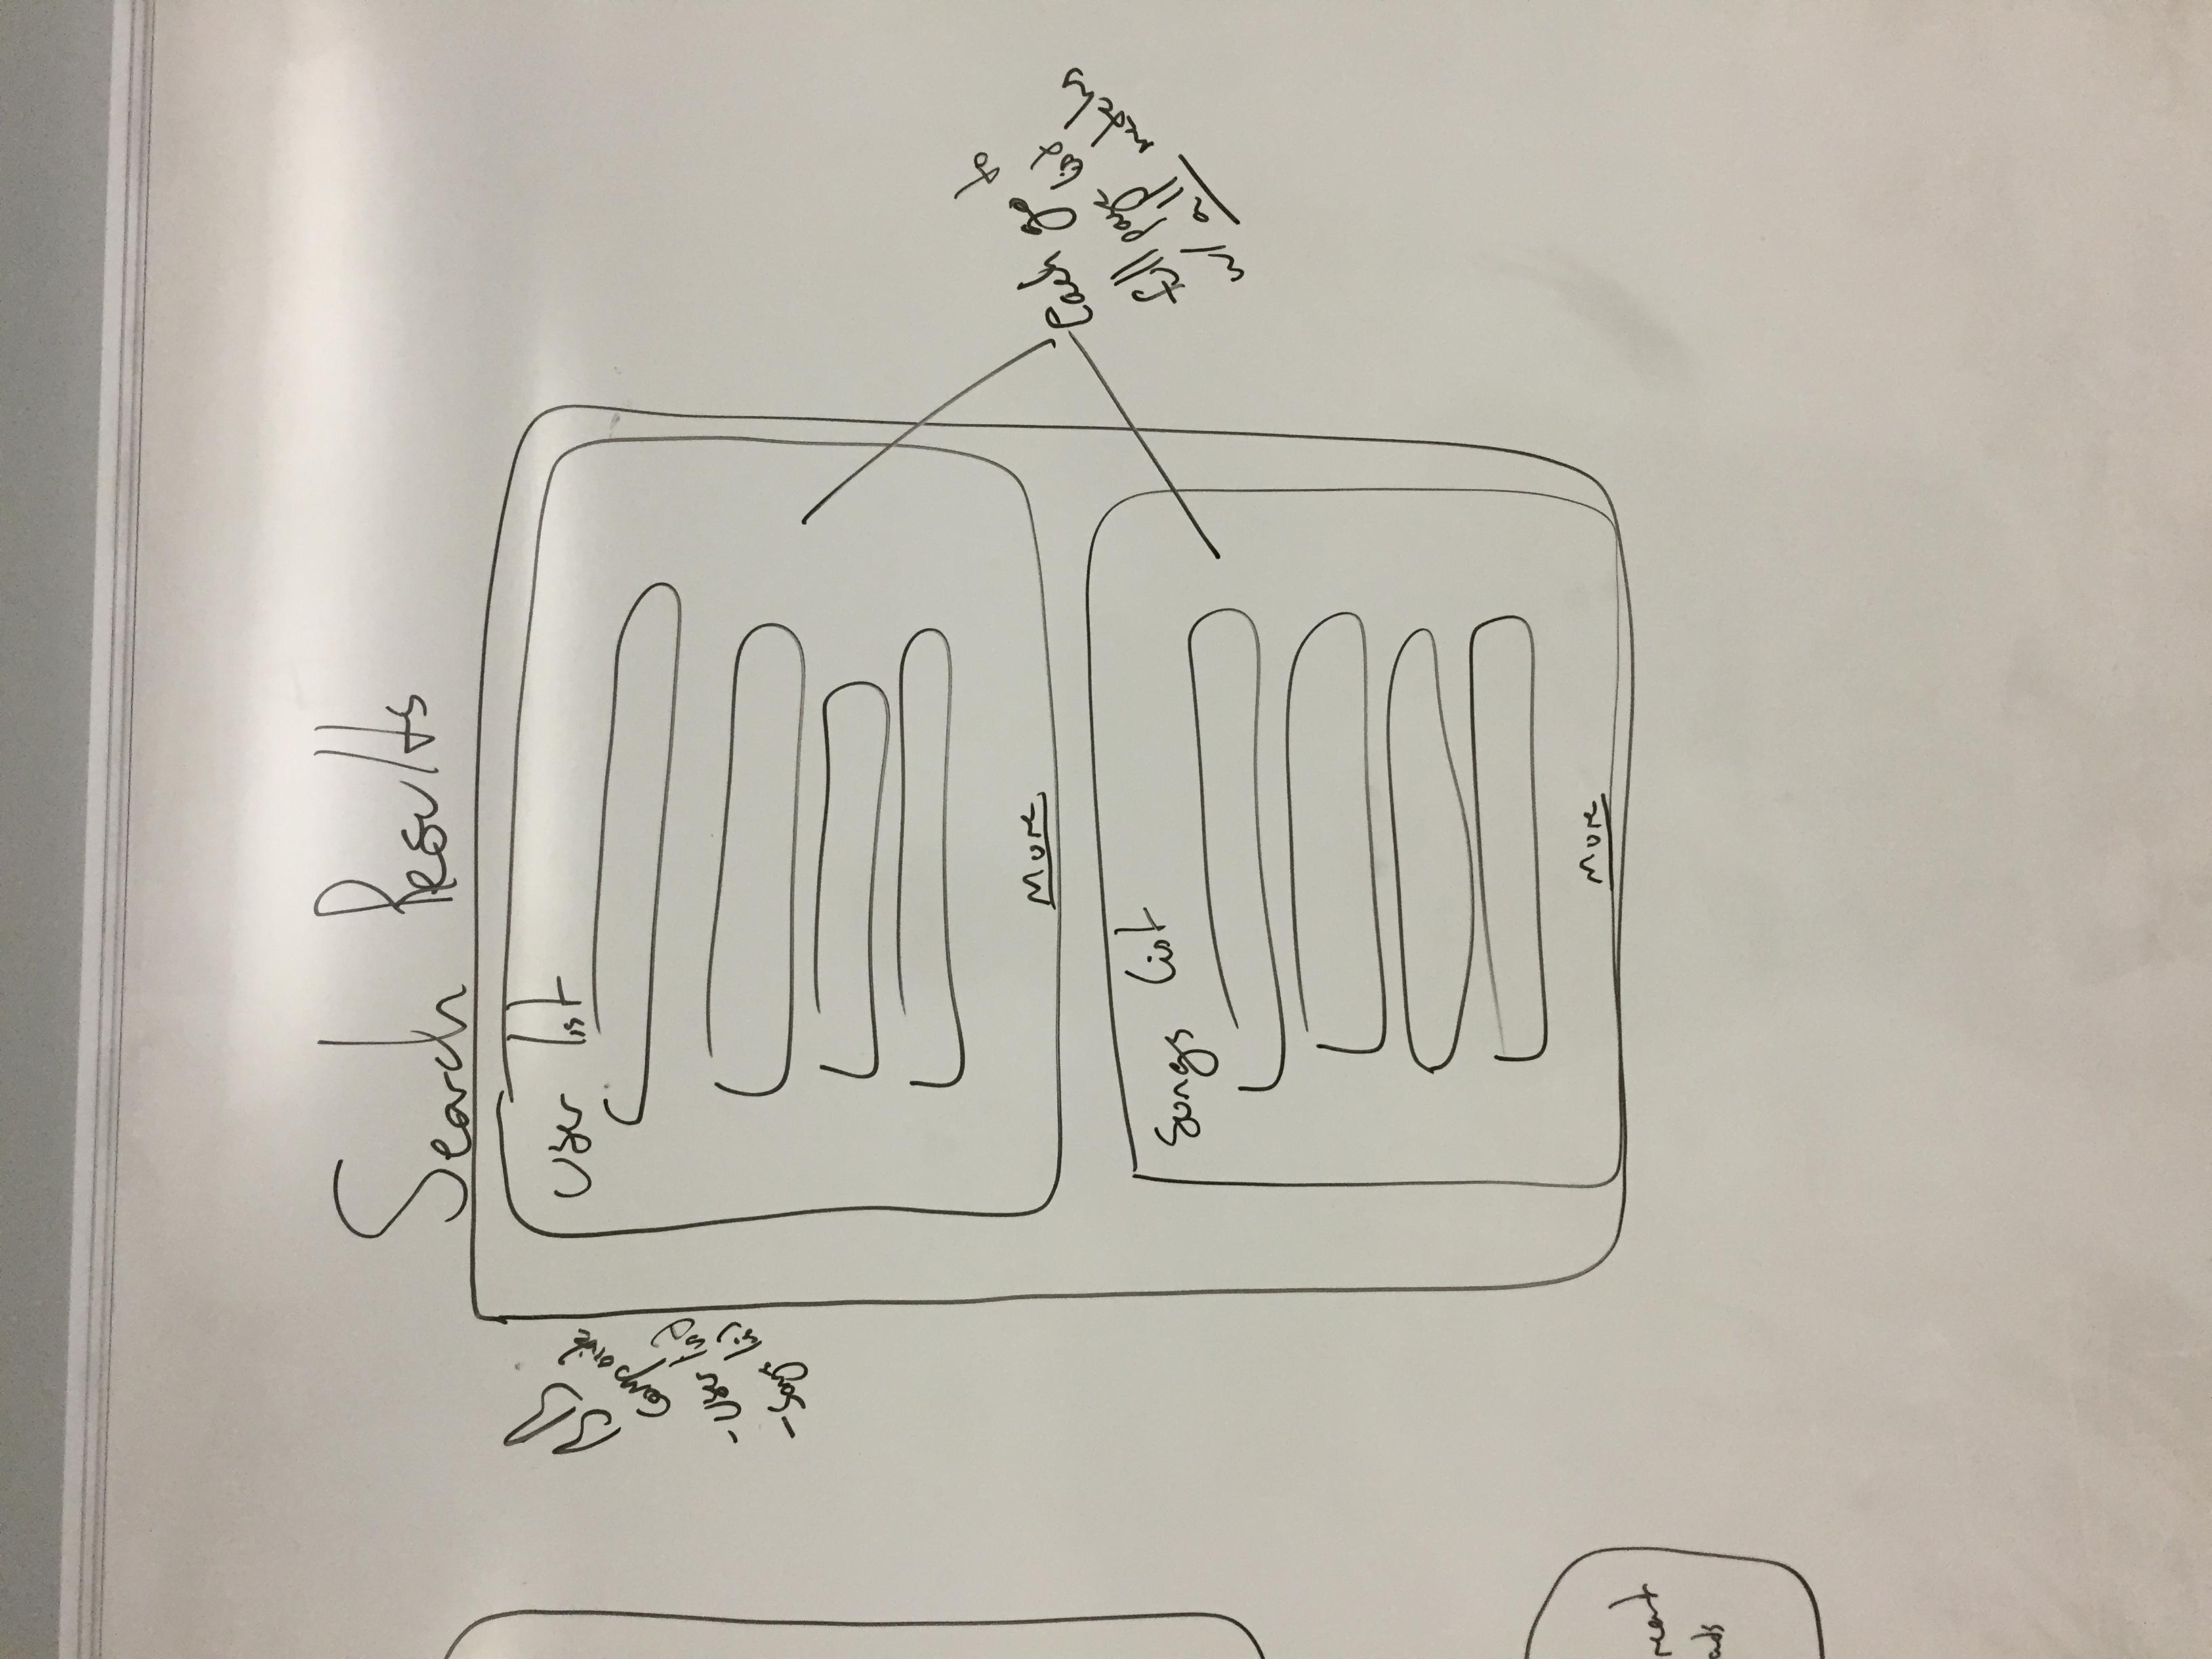 Search Results
BB
Composite
- User list
- Songs list
User list
More
Songs list
More
Each go to
full page list
w/ all matches
ads